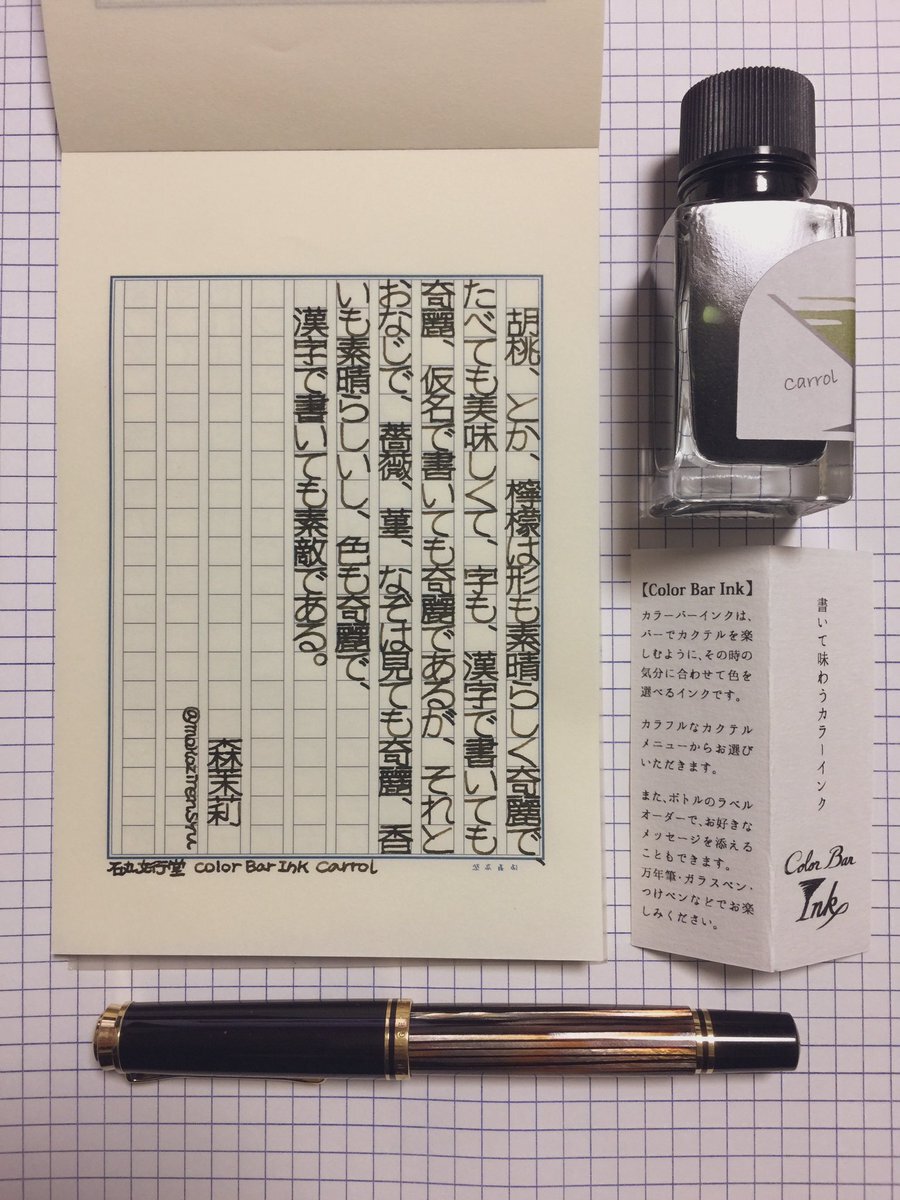 胡桃、とか、檸檬は形も素晴らしく奇麗で、
たべても美味しくて、字も、漢字で書いても
奇麗、仮名で書いても奇麗であるが、それと
おなじで、薔薇、菫、なぞは見ても奇麗、香
いも素晴らしいし、色も奇麗で、
漢字で書いても素敵である。
森茉莉
石丸文行堂 Color Bar Ink Carrol
carrol
【Color Bar Ink】
カラーバーインクは、
バーでカクテルを楽
しむように、その時の
気分に合わせて色を
選べるインクです。
カラフルなカクテル
メニューからお選び
いただきます。
また、ボトルのラベル
オーダーで、お好きな
メッセージを添える
こともできます。
万年筆・ガラスペン・
つけペンなどでお楽
しみください。
書いて味わうカラーインク
Color Bar
Ink